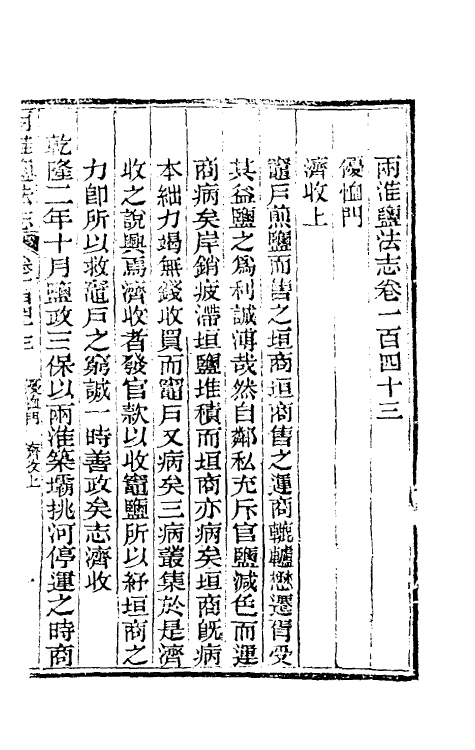 兩淮鹽法志卷一百四十三
優恤門
濟收上
竈戶煎鹽而售之垣商垣商售之運商轆轤懋遷胥受
其益鹽之爲利誠溥哉然自鄰私充斥官鹽減色而運
商病矣岸銷疲滯垣鹽堆積而垣商亦病矣垣商旣病
本絀力竭無錢收買而竈戶又病矣三病叢集於是濟
收之說興焉濟收者發官款以收竈鹽所以紓垣商之
力卽所以救竈戶之窮誠一時善政矣志濟收
乾隆二年十月鹽政三保以兩淮築壩挑河停運之時商
兩淮鹽法志 卷一百四十三 優恤門 濟收上